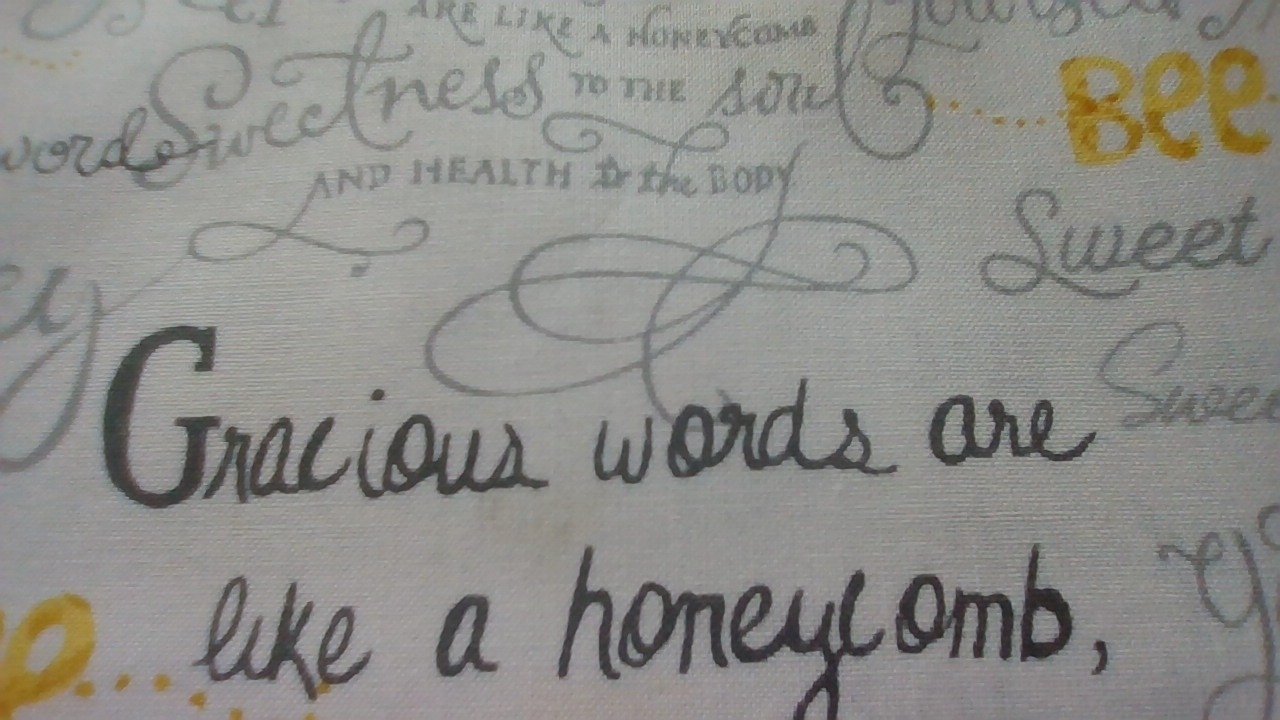 ARE LIKE A HONEYCOMB
Sweetness TO THE soul
Bee
words
AND HEALTH to the BODY
Sweet
Gracious words are
like a honeycomb,